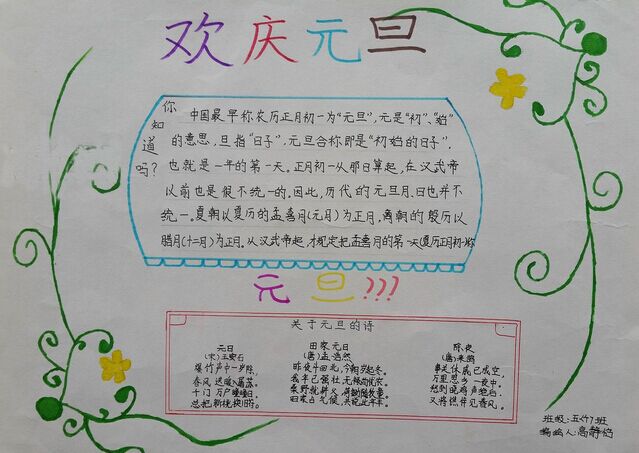 欢庆元旦
你知道吗?
中国最早称农历正月初一为“元旦”,元是“初”、“始”
的意思,旦指“日子”,元旦合称即是“初始的日子”,
也就是一年的第一天。正月初一从那日算起,在汉武帝
以前也是很不统一的。因此,历代的元旦月、日也并不
统一。夏朝以夏历的孟喜月(元月)为正月,商朝的殷历以
腊月(十二月)为正月。从汉武帝起,才规定把孟喜月的第一天(夏历正月初一)称
元旦???
关于元旦的诗
元日
(宋)王安石
爆竹声中一岁除,
春风送暖入屠苏。
千门万户曈曈日,
总把新桃换旧符。
田家元日
(唐)孟浩然
昨夜斗回北,今朝岁起冬。
我年已强壮,无禄尚忧农。
田家占气候,共说此年丰。
除夜
(唐)来鹄
事关休戚已成空,
万里思乡一夜中。
愁到晓鸡声绝后,
又将憔悴见春风。
班级:五(7)班
编绘人:高静怡